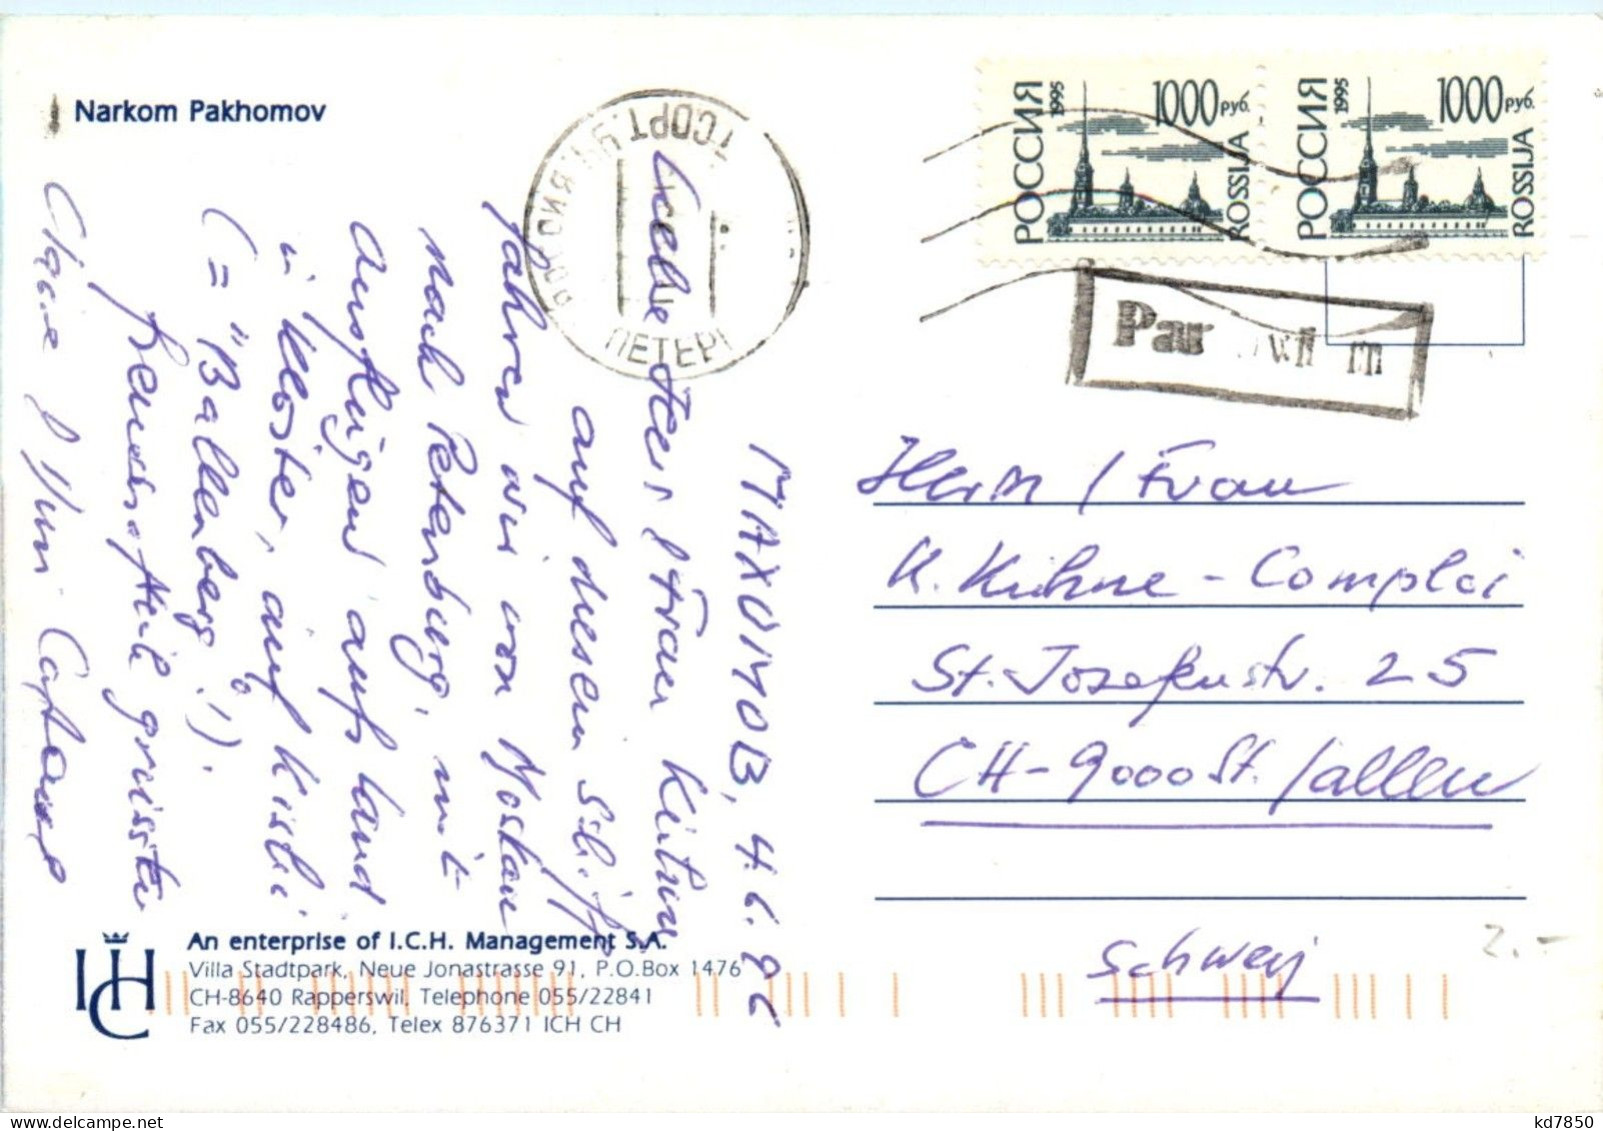 Narkom Pakhomov
РОССИЯ 1995
1000 руб.
ROSSIJA
РОССИЯ 1995
1000 руб.
ROSSIJA
ПЕТЕРБ
Par
4.6.96
Frau
auf diesem Schiff
fahren wir von Moskau
nach Petersburg, mit
Ausflügen aufs Land
in Klöster, auf Kishi
(= "Ballenberg"!).
Herrn / Frau
K. Kühne - Comploi
St. Josefenstr. 25
CH-9000 St. Gallen
Schweiz
ICH
An enterprise of I.C.H. Management S.A.
Villa Stadtpark, Neue Jonastrasse 91, P.O.Box 1476
CH-8640 Rapperswil, Telephone 055/22841
Fax 055/228486, Telex 876371 ICH CH
2.-
kd7850